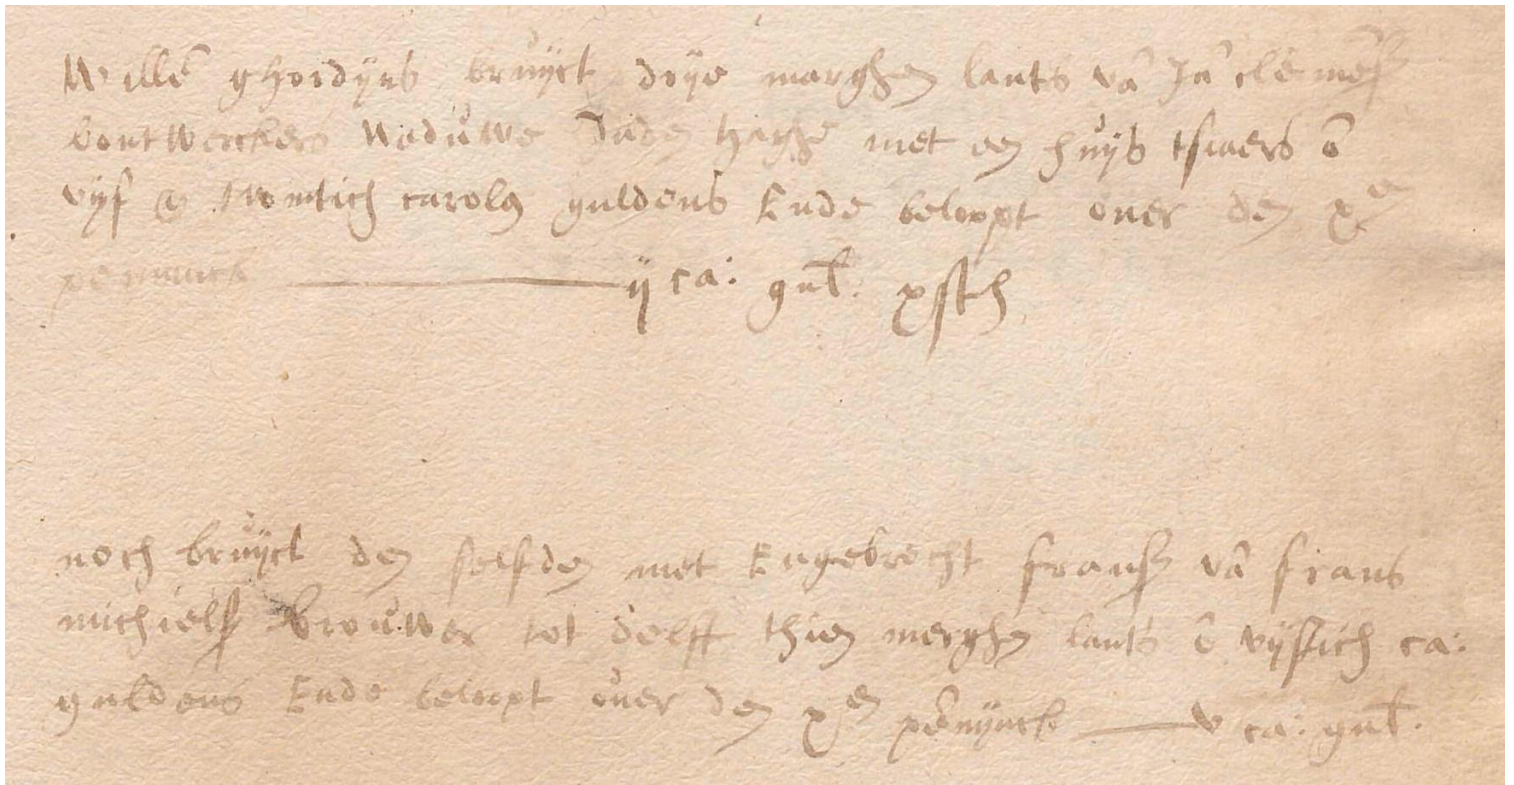 Willē ghordijns bruijct drije marghen lants vā Jā clēmēs
bontwerckers weduwe Inden haghe met een huijs tsiaers ō
vijf eñ twintich carolus guldens Ende beloopt over den xe
penninck ij ca: gul. x sth
noch bruijct den selfden met Engebrecht frans vā frans
michiels brouwer tot delff thien merghen lants ō vijftich ca:
guldens Ende beloopt over den xen pēnijnck v ca: gul.